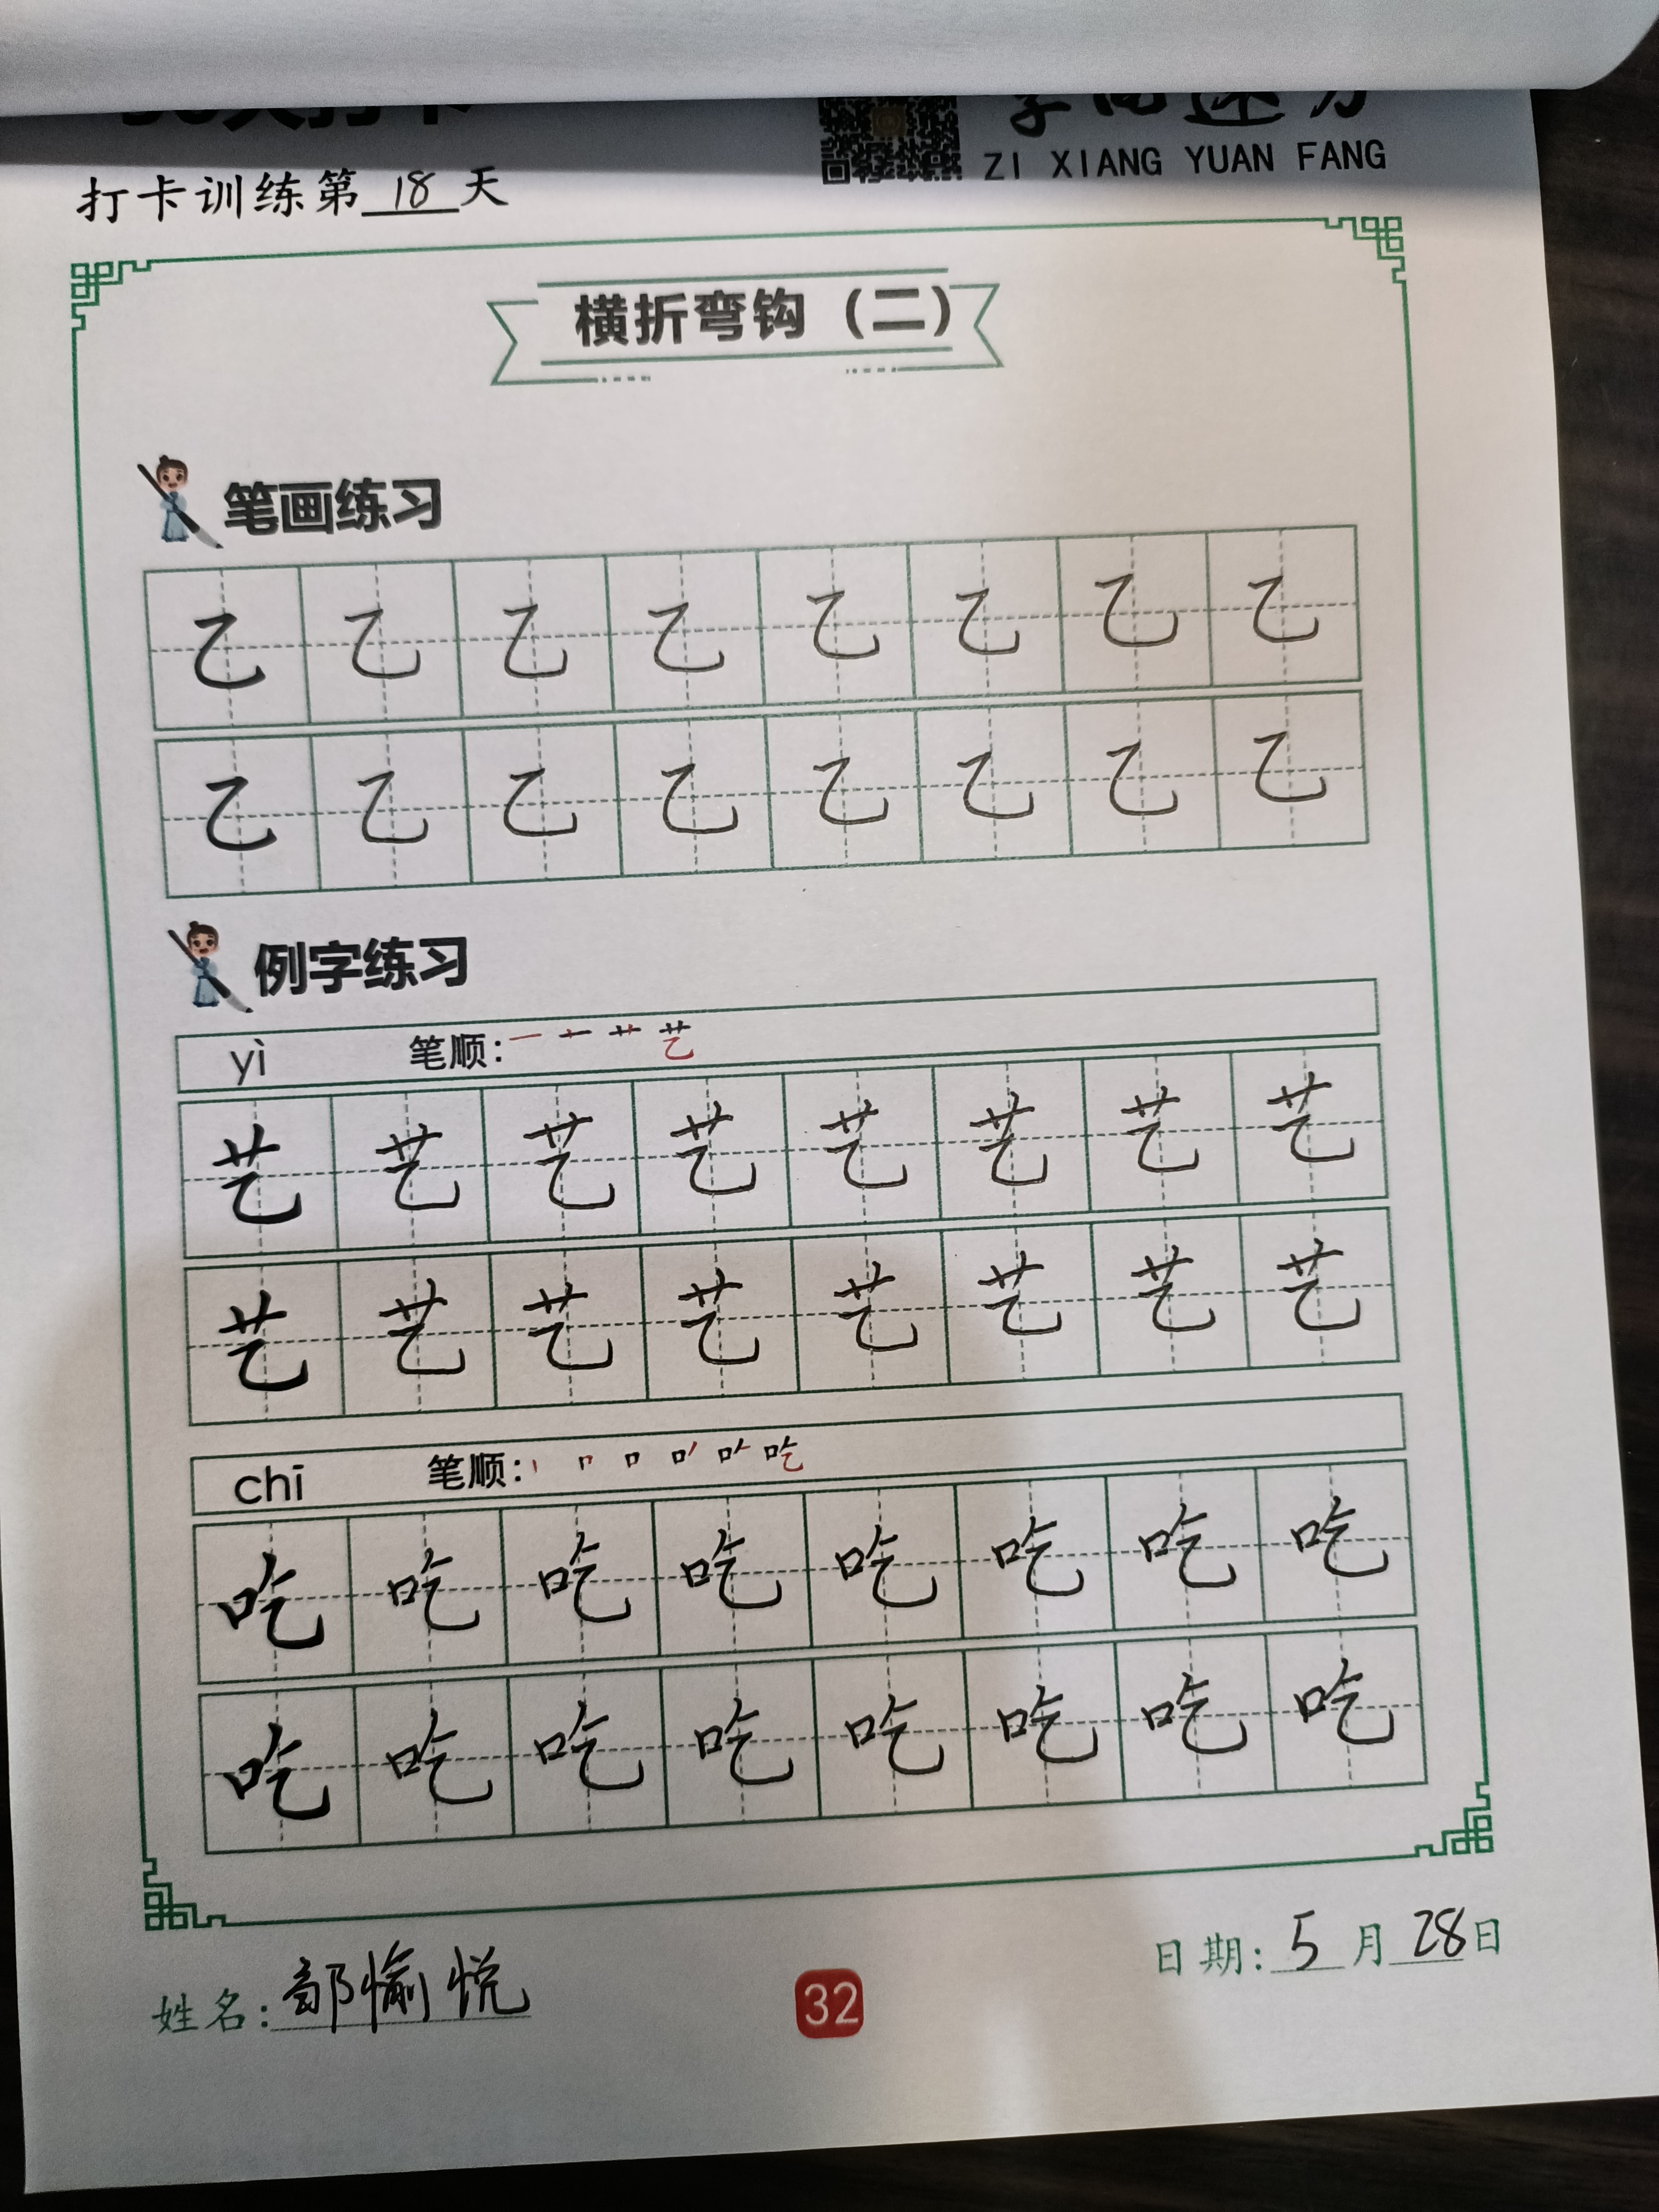 ZI XIANG YUAN FANG
打卡训练第18天
横折弯钩（二）
笔画练习
乙乙乙乙乙乙乙乙
乙乙乙乙乙乙乙乙
例字练习
yì 笔顺：
艺艺艺艺艺艺艺艺
艺艺艺艺艺艺艺艺
chī 笔顺：
吃吃吃吃吃吃吃吃
吃吃吃吃吃吃吃吃
日期：5月28日
姓名：部愉悦
32